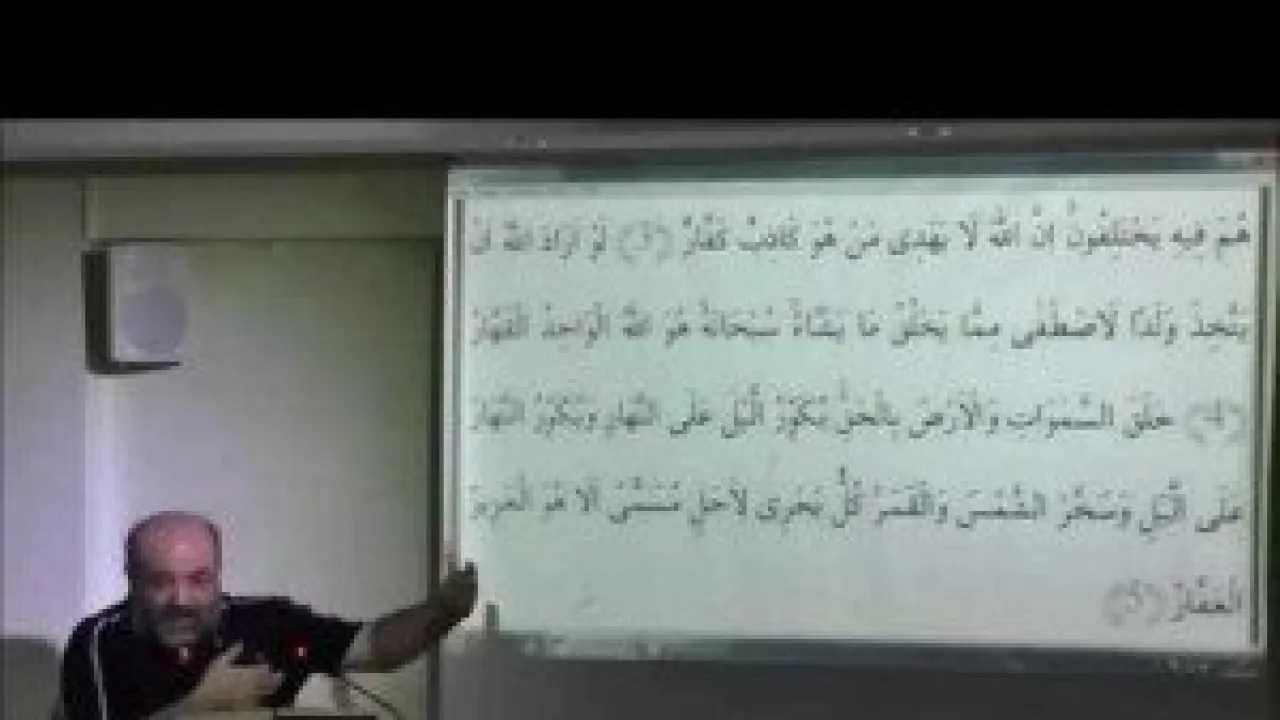 هُمْ فِيهِ يَخْتَلِفُونَ اِنَّ اللّٰهَ لَا يَهْدِى مَنْ هُوَ كَاذِبٌ كَفَّارٌ (3) لَوْ اَرَادَ اللّٰهُ اَنْ
يَتَّخِذَ وَلَدًا لَاصْطَفٰى مِمَّا يَخْلُقُ مَا يَشَٓاءُ سُبْحَانَهُ هُوَ اللّٰهُ الْوَاحِدُ الْقَهَّارُ
(4) خَلَقَ السَّمٰوَاتِ وَالْاَرْضَ بِالْحَقِّ يُكَوِّرُ الَّيْلَ عَلَى النَّهَارِ وَيُكَوِّرُ النَّهَارَ
عَلَى الَّيْلِ وَسَخَّرَ الشَّمْسَ وَالْقَمَرَ كُلٌّ يَجْرِى لِاَجَلٍ مُسَمًّى اَلَا هُوَ الْعَزِيزُ
الْغَفَّارُ (5)